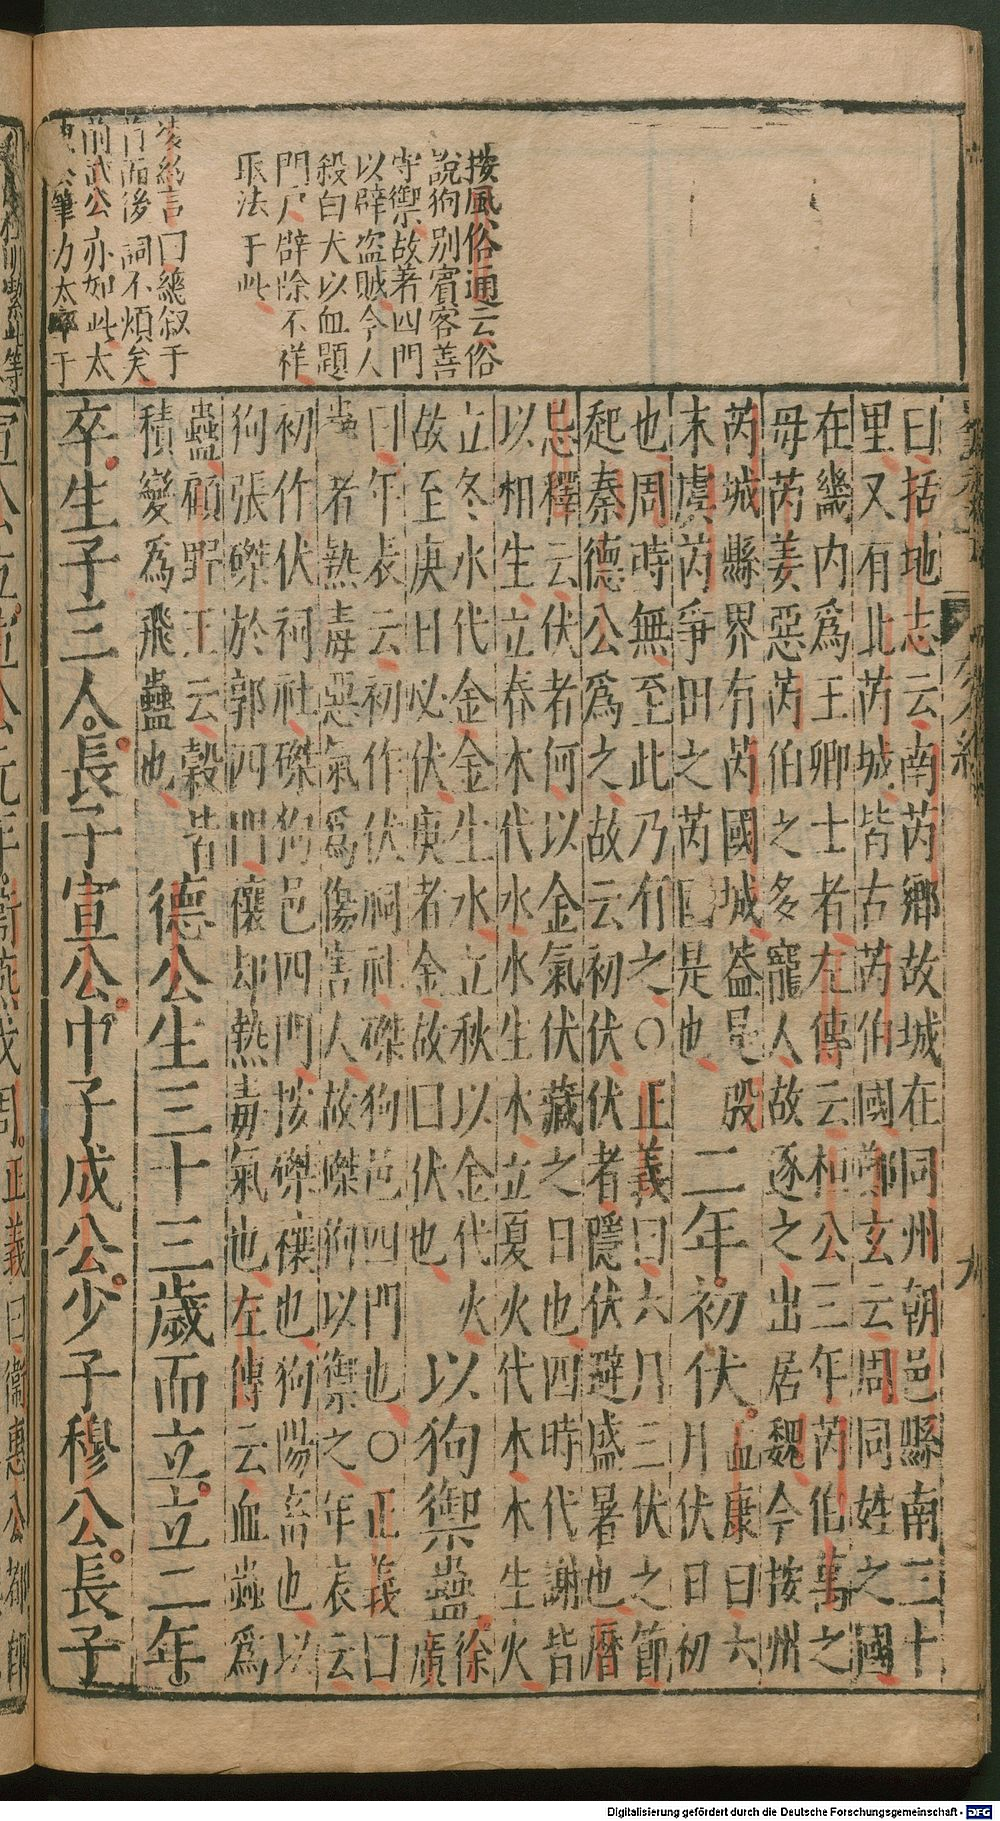 按風俗通云俗
說狗別賓客善
守禦故著四門
以辟盜賊今人
殺白犬以血題
門戶辟除不祥
取法于此
前武公亦如此太
曰括地志云南芮鄉故城在同州朝邑縣南三十
里又有北芮城皆古芮伯國鄭玄云周同姓之國
在畿內爲王卿士者左傳云桓公三年芮伯萬之
母芮姜惡芮伯之多寵人故逐之出居魏今按州
芮城縣界有芮國城蓋是殷
末虞芮爭田之芮國是也
二年初伏
孟康曰六
月伏日初
也周時無至此乃有之○正義曰六月三伏之節
起秦德公爲之故云初伏伏者隱伏避盛暑也曆
忌釋云伏者何以金氣伏藏之日也四時代謝皆
以相生立春木代水水生木立夏火代木木生火
立冬水代金金生水立秋以金代火
故至庚日必伏庚者金故曰伏也
以狗禦蠱
徐
廣
曰年表云初作伏祠社磔狗邑四門也○正義曰
蠱者熱毒惡氣爲傷害人故磔狗以禦之年表云
初作伏祠社磔狗邑四門按磔禳也狗陽畜也以
狗張磔於郭四門禳却熱毒氣也左傳云皿蟲爲
蠱顧野王云穀皆
積變爲飛蠱也
德公生三十三歲而立立二年
卒生子三人長子宣公中子成公少子穆公長子
Digitalisierung gefördert durch die Deutsche Forschungsgemeinschaft - DFG